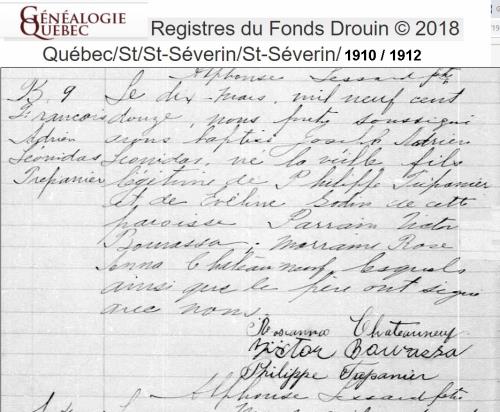 GÉNÉALOGIE
QUÉBEC
Registres du Fonds Drouin © 2018
Québec/St/St-Séverin/St-Séverin/ 1910 / 1912
Alphonse Lessard ptre
B. 9 Le dix Mars, mil neuf cent
Francois douze, nous prêtre soussigné
Adrien avons baptisé Joseph Adrien
Léonidas Léonidas, né la veille fils
Trepanier légitime de Philippe Trépanier
et de Eveline Godin de cette
paroisse Parrain Victor
Bourassa; Marraine Rose
Anna Châteauneuf, lesquels
ainsi que le père ont signé
avec nous.
Roseanna Chateauneuf
Victor Bourassa
Philippe Trepanier
Alphonse Lessard ptre